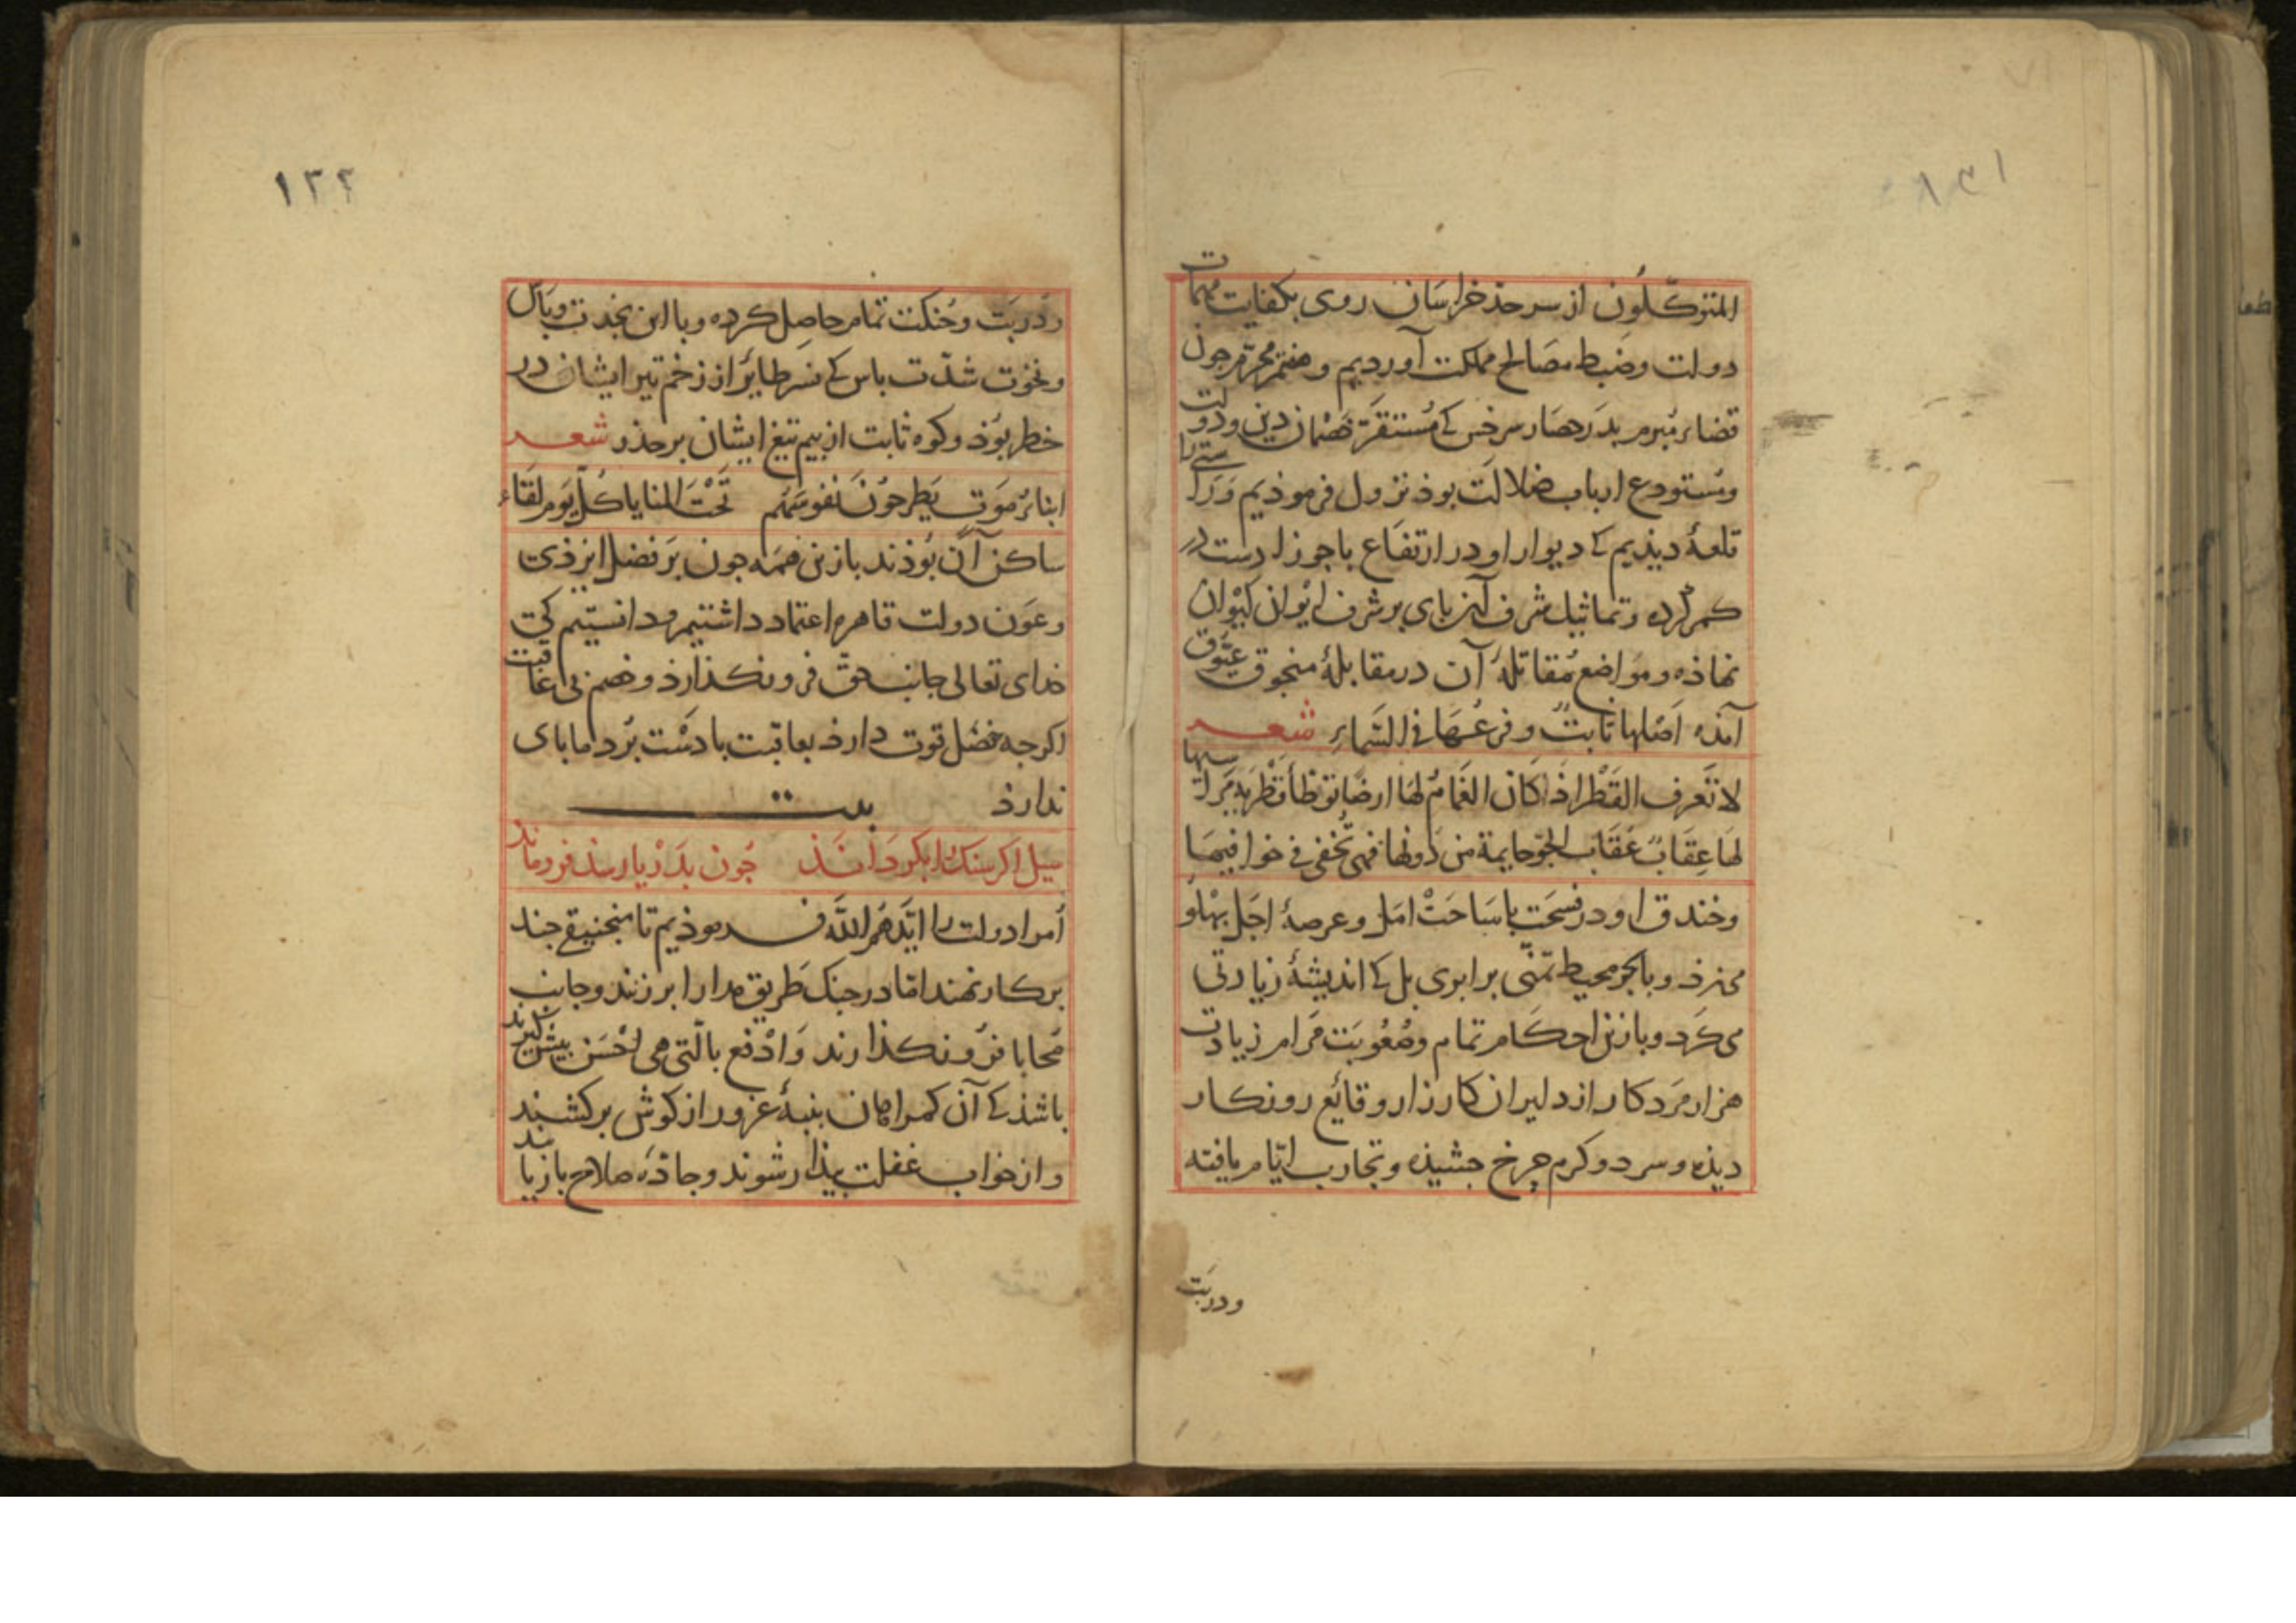 المتوکّلون از سر حد خراسان روی بکفایت مهمات
دولت و ضبط مصالح مملکت آوردیم و ختم محرّم جون
قضاء مبرم بدر حصار سرخس کی مُستقرّ خصمان دین و دولت
و مستودع ارباب ضلالت بوذ نزول فرموذیم
قلعهٔ دیذیم کی دیوار او در ارتفاع با جوزا دست در
کمر کرده و تماثیل شرف آن بای بر شرف ایوان کیوان
نهاذه و مواضع مُقاتلهٔ آن در مقابلهٔ منجوق عیّوق
آمذه اَصْلها ثابتٌ و فرعُها فی السّماءِ شعـــر
لا تَعرف القَطْر اذ کان الغَمامُ لها ارضًا توطأ قطریه
لها عِقَابٌ عُقَاب الجوّ حایمة من دُونها فهی تُخفی فی خوافیها
و خندق او در فسحت با ساحت امل و عرصهٔ اجل بهلو
می‌زذ و با بحر محیط تمنّی برابری بل کی اندیشهٔ زیادتی
می کرد و بازین احکام تمام و صُعُوبت مَرام زیادت
هزار مرد کار از دلیران کارزار وقائع روزکار
دیذه و سرد و کرم چرخ جشیذه و تجارب ایّام یافته
ودربَت
١٢٢
و دُربَت و حُنکت تمام حاصل کرده و با این نجدت و باس
و نخوت شدّت باس کی نسر طایر از زخم تیر ایشان در
خطر بوُذ و کوه ثابت از بیم تیغ ایشان بر حذر شعـــر
ابناءُ مَوت یَطرحُونَ نفوسَهُم تَحْتَ المنایا کلّ یَوم لقَاء
ساکن آن بُوذند بازین همه جون بر فضل ایزذی
و عَون دولت قاهره اعتماد داشتیم و دانستیم کی
خدای تعالی جانب حق فرو نکذارذ و خصم بی عاقبت
اکرجه فضل قوت دارذ بعاقبت با دست بُرد ما بای
نذارذ بیت
سیل اکر سنک را بکرداند جُون بدَرْیا رسذ فرو ماند
اُمرا دولت را ایّدهُمُ اللّه فرموذیم تا منجنیقی جند
بر کار نهند امّا در جنک طریق مدارا برزند و جانب
مُحابا فرُو نکذارند و اِدْفع بالّتی هی اَحْسَن بیش کیرند
باشذ کی آن کمراهان بنبهٔ غرور از کوش برکشند
و از خواب غفلت بیذار شوند و جاذهٔ صلاح بازیابند